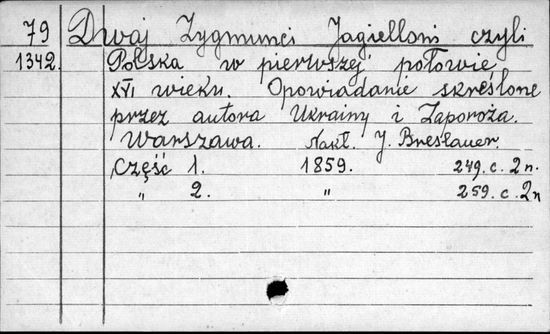 79 Dwaj Zygmunci Jagielloni czyli
1342. Polska w pierwszej połowie
XVI wieku. Opowiadanie skreślone
przez autora Ukrainy i Zaporoża.
Warszawa. Nakł. J. Breslauer.
Część 1. 1859. 249. c. 2 n.
„ 2. „ 259. c. 2 n